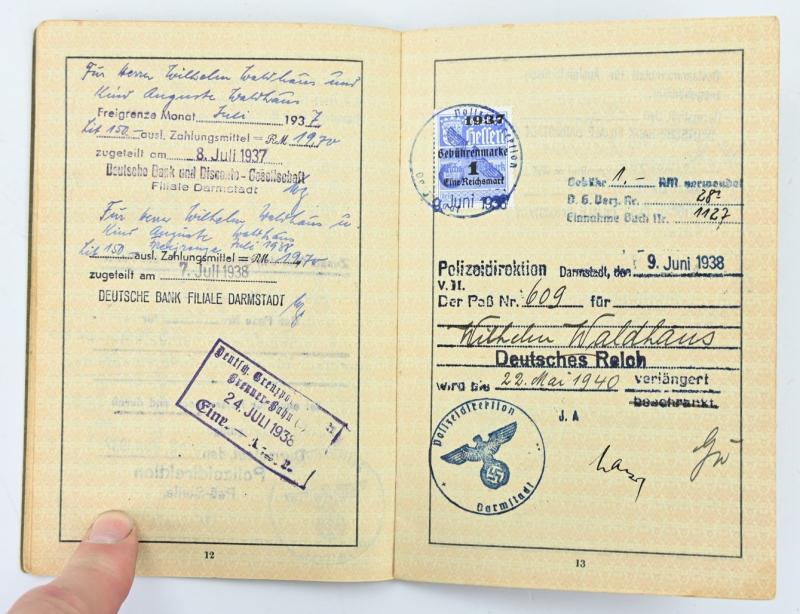 Für Herrn Wilhelm Waldhaus und
Kind Auguste Waldhaus
Freigrenze Monat Juli 1937
Lit 150.- ausl. Zahlungsmittel = RM 19,70
zugeteilt am 8. Juli 1937
Deutsche Bank und Disconto-Gesellschaft
Filiale Darmstadt
Für Herrn Wilhelm Waldhaus u.
Kind Auguste Waldhaus
Freigrenze Juli 1938
Lit 150.- ausl. Zahlungsmittel = RM 19,70
zugeteilt am 7. Juli 1938
DEUTSCHE BANK FILIALE DARMSTADT
Deutsch.
Brenner-Bahn
24. JULI 1938
12
Polizeidirektion
1937
Hellere
Gebührenmarke
1
Eine Reichsmark
9. Juni 1938
Gebühr 1.- RM. verwendet
B. G. Verz. Nr. 282
Einnahme Buch Nr. 1127
Polizeidirektion Darmstadt, den 9. Juni 1938
V. H.
Der Paß Nr. 609 für
Wilhelm Waldhaus
Deutsches Reich
wird bis 22. Mai 1940 verlängert
beschränkt.
J. A
Polizeidirektion
Darmstadt
13